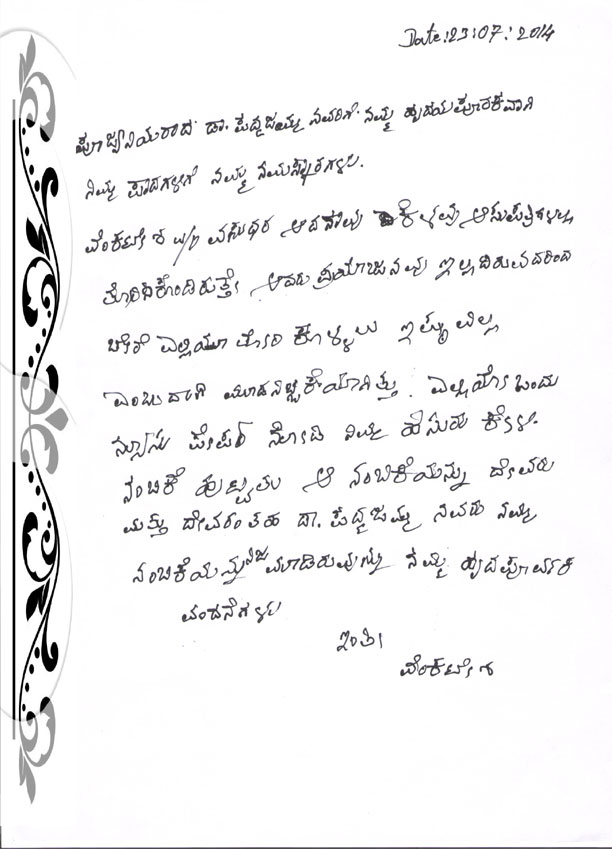 Date: 23:07:2014
ಪೂಜ್ವನಿಯರಾದ ಡಾ. ಪದ್ಮಜಮ್ಮ ನವರಿಗೆ. ನಮ್ಮ ಹೃದಯಪೂರಕವಾಗಿ
ನಿಮ್ಮ ಪಾದಗಳಿಗೆ ನಮ್ಮ ನಮಸ್ಕಾರಗಳು.
ವೆಂಕಟೇಶ w/o ವಸುಧರ ಆದ ನಾವು ಕೆಳವು ಆಸುಪತ್ರೆಗಳಲ್ಲಿ
ತೊರಿಬಿಕೊಂಡಿರುತ್ತೇ ಅವರು ಪ್ರಯೋಜನವು ಇಲ್ಲದಿರುವದರಿಂದ
ಬೇರೆ ಎಲ್ಲಿಯೂ ತೋರಿ ಕೊಳ್ಳಲು ಇಷ್ಟವಿಲ್ಲ
ಎಂಬುದಾಗಿ ಮೂಡನಿಚ್ಚಕೆಯಾಗಿತ್ತು. ಎಲ್ಲಿಯೋ ಒಂದು
ನ್ಯೂಸು ಪೇಪರ್ ನೋಡಿ ನಿಮ್ಮ ಹೆಸರು ಕೇಳಿ.
ನಂಬಿಕೆ ಹುಟ್ವತು ಆ ನಂಬಿಕೆಯನ್ನು ದೇವರು
ಮತ್ತು ದೇವರಂತಹ ಡಾ. ಪದ್ಮಜಮ್ಮ ನವರು ನಮ್ಮ
ನಂಬಿಕೆಯನ್ನು ನಿಜ ಮಾಡಿರುವುದು ನಮ್ಮ ಹೃದಪೂರ್ವಕ
ವಂದನೆಗಳು
ಇಂತಿ
ವೆಂಕಟೇಶ